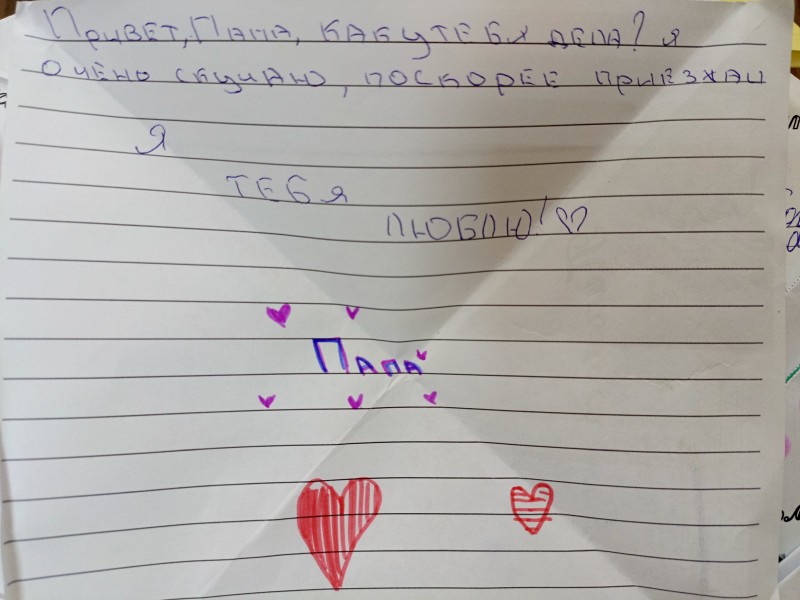 Привет, Папа, как у тебя дела? я
очено скучаю, поскорее приезжай
Я
тебя
люблю!
Папа